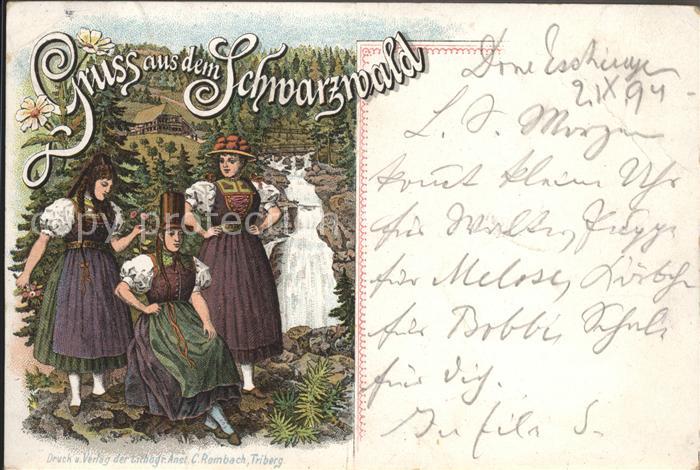 Gruss aus dem Schwarzwald
Donaueschingen
2 IX 94
L. S. Morgen
kommt kleine Uhr
für Walter, Puppe
für Melose, Körbch
für Bobbi, Schuh
für Dich.
S.
Druck u. Verlag der Lithogr. Anst. C. Rombach, Triberg.
copyright protected